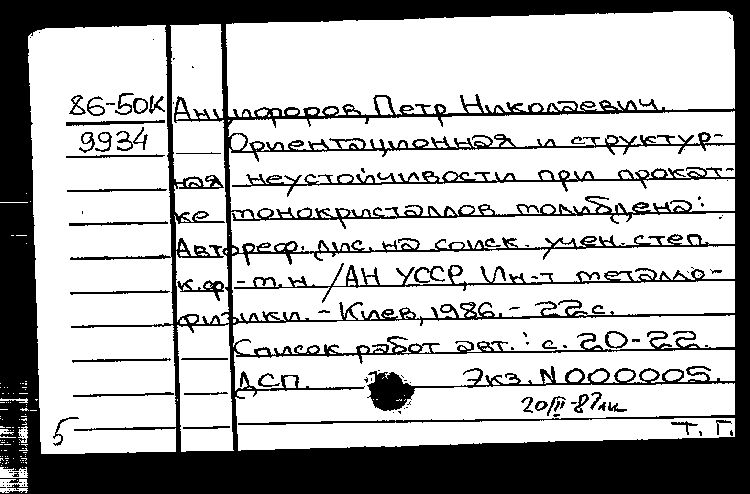 86-50К Анцифоров, Петр Николаевич.
9934 Ориентационная и структур-
ная неустойчивости при прокат-
ке монокристаллов молибдена:
Автореф. дис. на соиск. учен. степ.
к.ф.-м.н. /АН УССР, Ин-т металло-
физики. - Киев, 1986. - 22с.
Список работ авт.: с. 20-22.
ДСП. Экз. N 000005.
20/III-87
5 Т. Г.